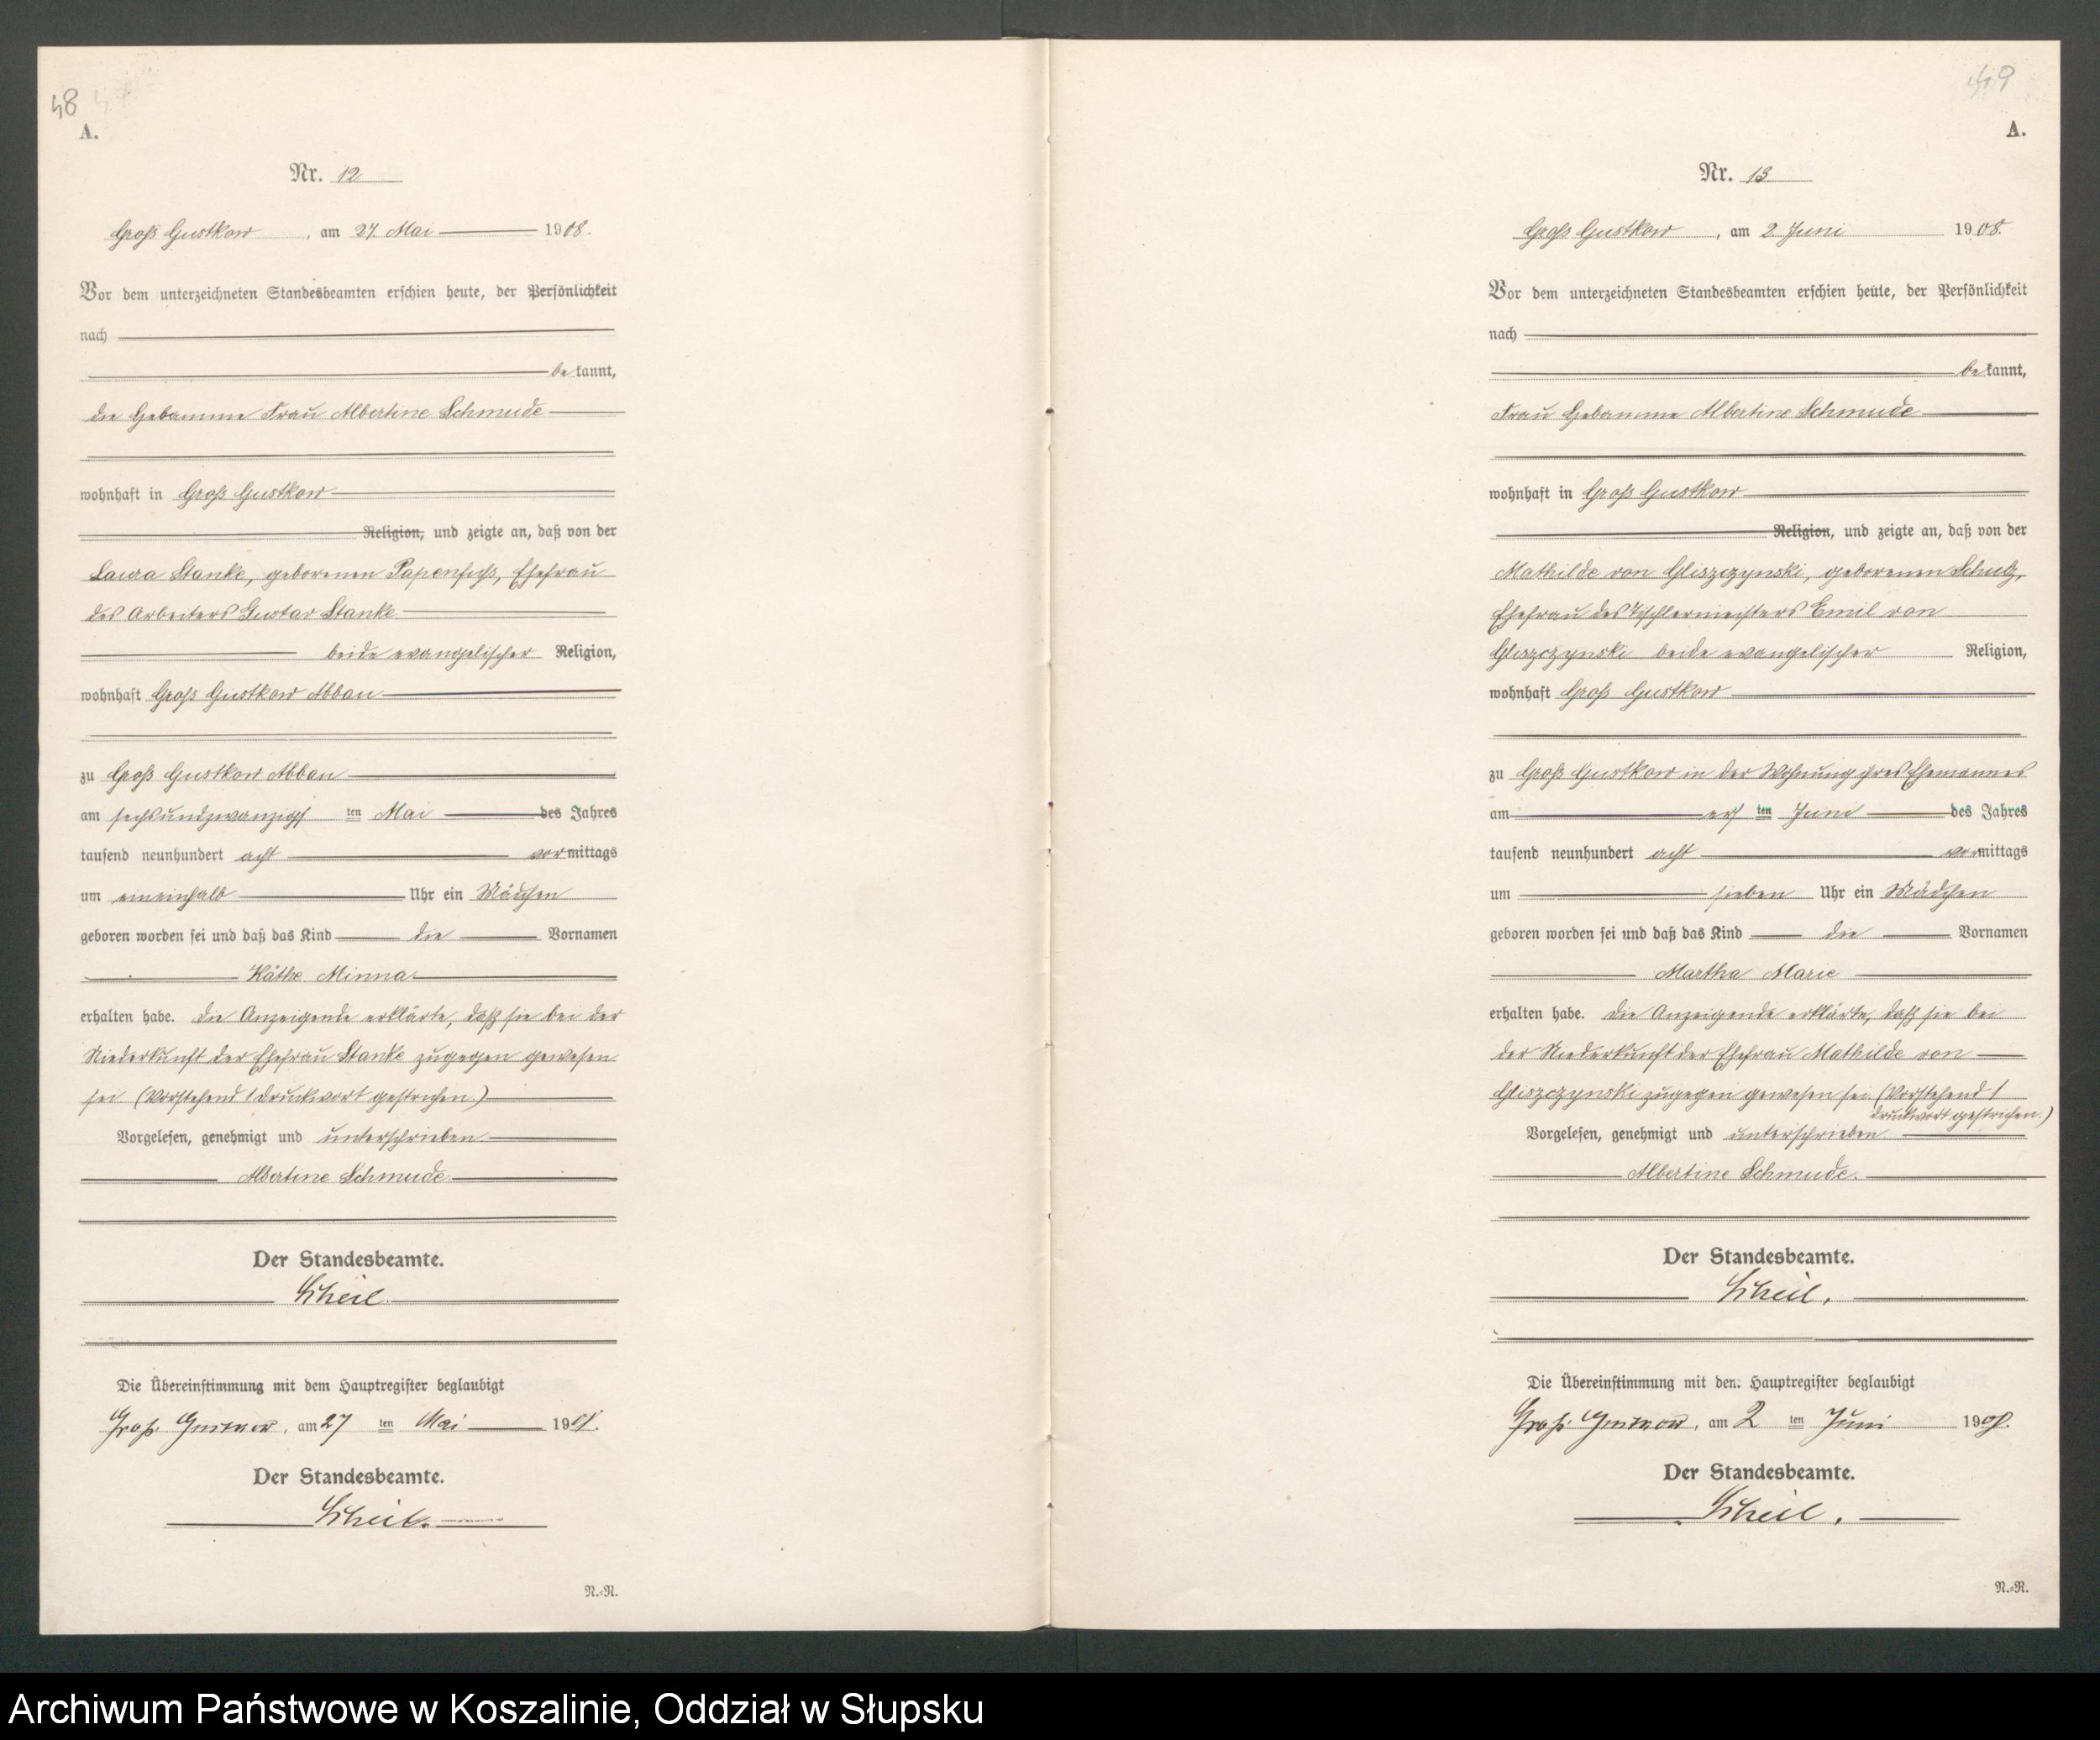 48
A.
Nr. 12
Groß Gustkow, am 27. Mai 1908.
Vor dem unterzeichneten Standesbeamten erschien heute, der Persönlichkeit
nach
bekannt,
die Hebamme Frau Albertine Schmude
wohnhaft in Groß Gustkow
Religion, und zeigte an, daß von der
Laura Stanke, geborenen Papenfuß, Ehefrau
des Arbeiters Gustav Stanke
beide evangelischer Religion,
wohnhaft Groß Gustkow Abbau
zu Groß Gustkow Abbau
am sechsundzwanzigsten Mai des Jahres
tausend neunhundert acht vormittags
um eineinhalb Uhr ein Mädchen
geboren worden sei und daß das Kind die Vornamen
Käthe Minna
erhalten habe. Die Anzeigende erklärte, daß sie bei der
Niederkunft der Ehefrau Stanke zugegen gewesen
sei (Vorstehend 1 Druckwort gestrichen.)
Vorgelesen, genehmigt und unterschrieben
Albertine Schmude
Der Standesbeamte.
Scheil.
Die Übereinstimmung mit dem Hauptregister beglaubigt
Groß Gustkow, am 27 ten Mai 1908.
Der Standesbeamte.
Scheil.
N.-R.
49
A.
Nr. 13
Groß Gustkow, am 2 Juni 1908.
Vor dem unterzeichneten Standesbeamten erschien heute, der Persönlichkeit
nach
bekannt,
Frau Hebamme Albertine Schmude
wohnhaft in Groß Gustkow
Religion, und zeigte an, daß von der
Mathilde von Gliszczynski, geborenen Schulz,
Ehefrau des Tischlermeisters Emil von
Gliszczynski beide evangelischer Religion,
wohnhaft Groß Gustkow
zu Groß Gustkow in der Wohnung ihres Ehemannes
am ersten Juni des Jahres
tausend neunhundert acht vormittags
um sieben Uhr ein Mädchen
geboren worden sei und daß das Kind die Vornamen
Martha Marie
erhalten habe. Die Anzeigende erklärte, daß sie bei
der Niederkunft der Ehefrau Mathilde von
Gliszczynski zugegen gewesen sei. (Vorstehend 1
Druckwort gestrichen.)
Vorgelesen, genehmigt und unterschrieben
Albertine Schmude.
Der Standesbeamte.
Scheil.
Die Übereinstimmung mit dem Hauptregister beglaubigt
Groß Gustkow, am 2 ten Juni 1908.
Der Standesbeamte.
Scheil.
N.-R.
Archiwum Państwowe w Koszalinie, Oddział w Słupsku